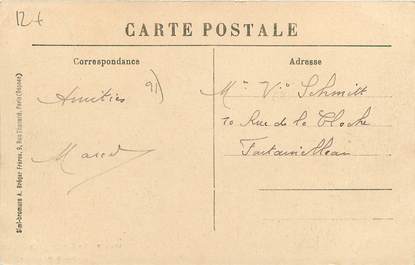 12 +
CARTE POSTALE
Correspondance
Adresse
Amitiés
91)
Marcel
Mme Vve Schmitt
10 Rue de la Cloche
Fontainebleau
Simi-bromure A. Bréger Frères, 9, Rue Thénard, Paris